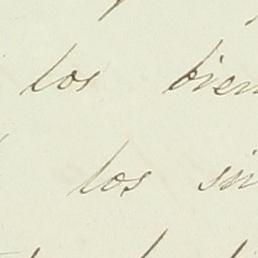 los bien
los sin